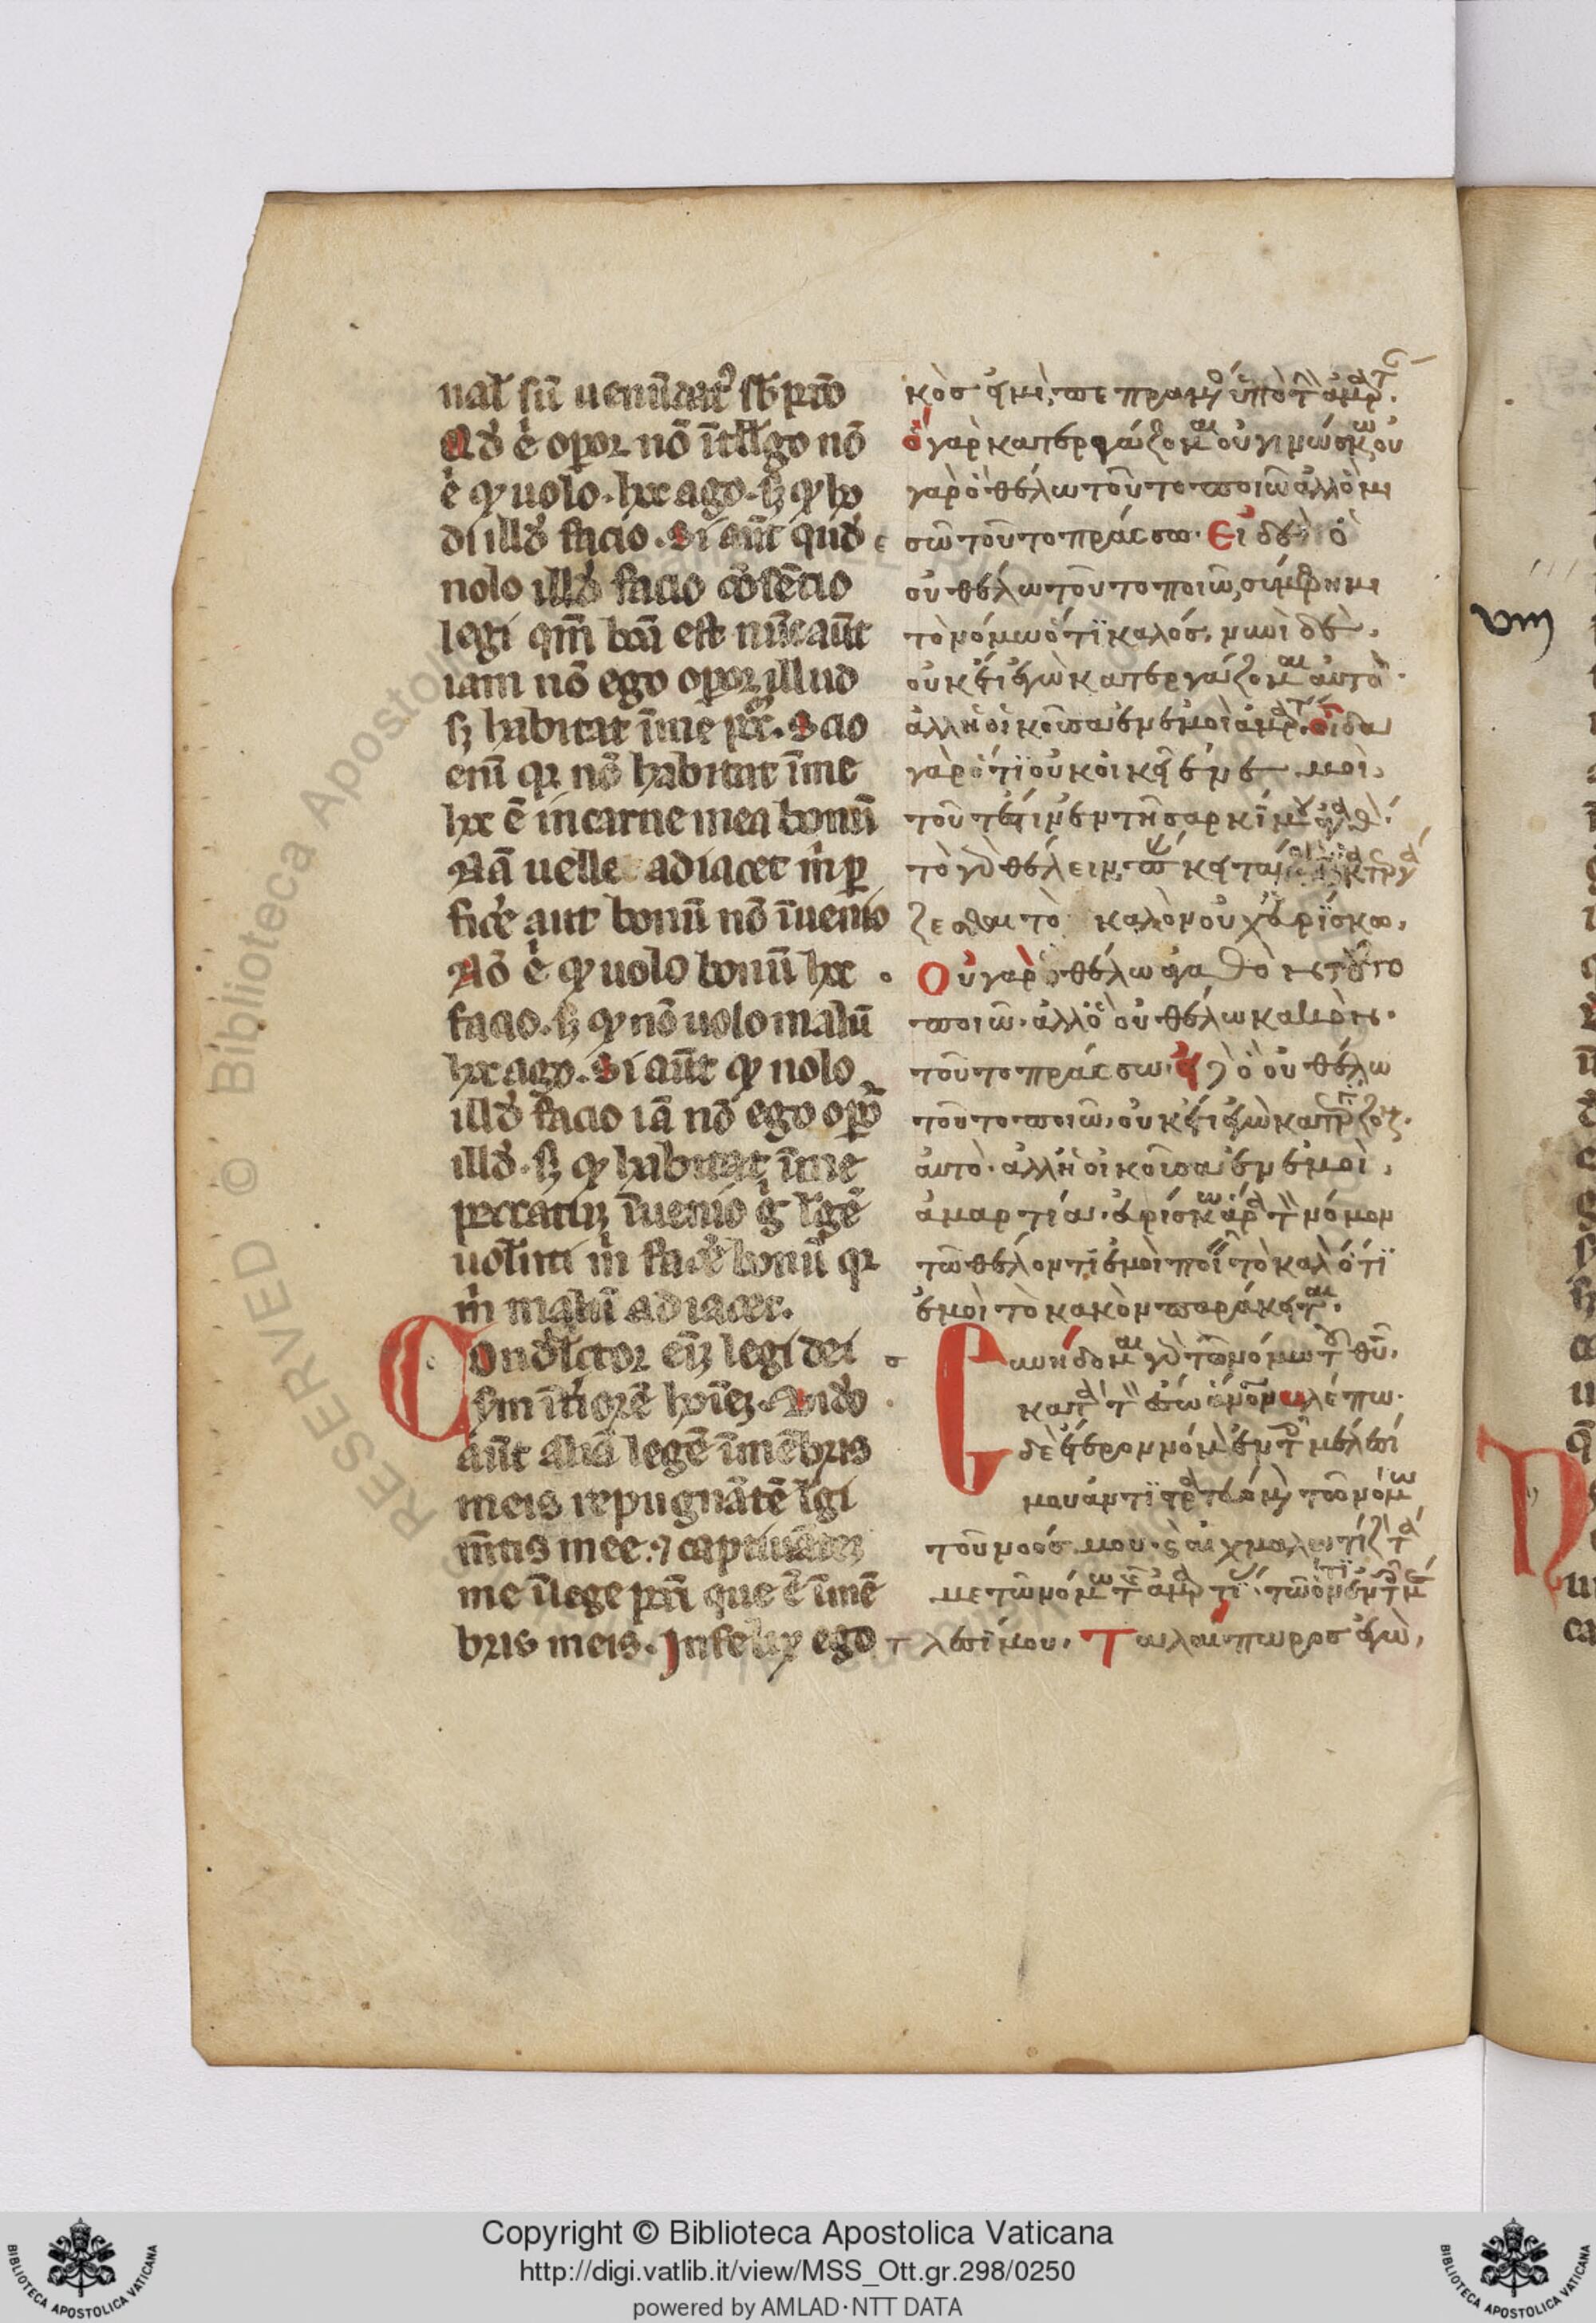 nal̄ sū uenūdat᷒ sb̄ pctō
Qd̓ e᷒ opor. nō ītllgo nō
e᷒ qꝫ uolo. hoc ago. sꝫ qꝫ ho
di illd̓ facio. Si aūt quid̓
nolo illd̓ facio cōsētio
legi qm̄ bōū est nūc aūt
iam nō ego opor illud
sꝫ habitat ī me pcc̄. Scio
enī qꝛ nō habitat ī me
hoc ē in carne mea bonū
Nā uelle adiacet m̓ ꝑ
fice᷒ aut bonū nō īuenio
Nō e᷒ qꝫ uolo bonū hoc
facio. sꝫ qꝫ nō uolo malū
hoc ago. Si aūt qꝫ nolo
illd̓ facio iā nō ego opor̄
illd̓. sꝫ qꝫ habitat ī me
peccatūꝫ īuenio g̓ l̄gē
uol̄nti m̓ face᷒ bonū qꝛ
m̓ malū adiacet.
Condl̄ctor enꝫ legi dei
sm īt̓iorē hoīeꝫ. Uideo
aūt aliā legē ī mēbris
meis repugnātē l̄gi
m̄tis mee. ⁊ captiuāteꝫ
me ī lege pcti que ē ī mē
bris meis. Infelix ego
κὸσ εἰμὶ, πεπραμν͂ ὑπὸ τ̀ ἁμρ̄τ.
ὃ γαρ κατεργάζομαι οὐ γινώσκω, οὐ
γαρ ὃ θέλω τοῦτο ποιῶ ἀλλὃ μι
σῶ τοῦτο πράσσω. Εἰ δὲ ὃ
οὐ θέλω τοῦτο ποιῶ, σύμφημι
τὸ νόμω ὅτϊ καλόσ, νυνὶ δὲ.
οὐκέτι ἐγὼ κατεργάζομαι αὐτὸ.
ἀλλἡ οἰκοῦσα ἐν ἐμοὶ ἁμρ̄τ. οἶδα
γαρ ὅτϊ οὐκ οἰκεῖ ἐν ἐμοὶ,
τοῦτέστιν ἐν τῆ σαρκΐ μου ἀγαθ.
τὸ γὰρ θέλειν,
ζεσθαι τὸ καλὸν οὐχ εὑρΐσκω,
Οὐ γαρ ὃ θέλω ἀγαθὸν τοῦτο
ποιῶ. ἀλλὃ οὐ θέλω κακὸν.
τοῦτο πράσσω. εἰ δὲ ὃ οὐ θέλω
τοῦτο ποιῶ, οὐκέτι ἐγὼ κατεργάζομ.
αὐτὸ. ἀλλἡ οἰκοῦσα ἐν ἐμοὶ,
ἁμαρτία. εὑρίσκω ἄρα τ̀ νόμον
τῶ θέλοντϊ ἐμοὶ ποιεῖν τὸ καλὸ ὅτϊ
ἐμοὶ τὸ κακὸν παράκειται.
Συνήδομαι γὰρ τῶ νόμω τοῦ θῦ.
κατὰ τ̀ ἔσω ἄνον βλέπω.
δὲ ἕτερον νόμ ἐν τοῖς μέλεσί
μου ἀντϊστρατευόμν τῶ νόμω
τοῦ νοόσ μου. καὶ αἰχμαλωτίζτά
με τῶ νόμω τῆς ἁμρτί. τῶ ὄντϊ ἐν τοῖς μέ
λεσΐ μου. Ταλαίπωροσ ἐγὼ,
VIII
Copyright © Biblioteca Apostolica Vaticana
http://digi.vatlib.it/view/MSS_Ott.gr.298/0250
powered by AMLAD·NTT DATA